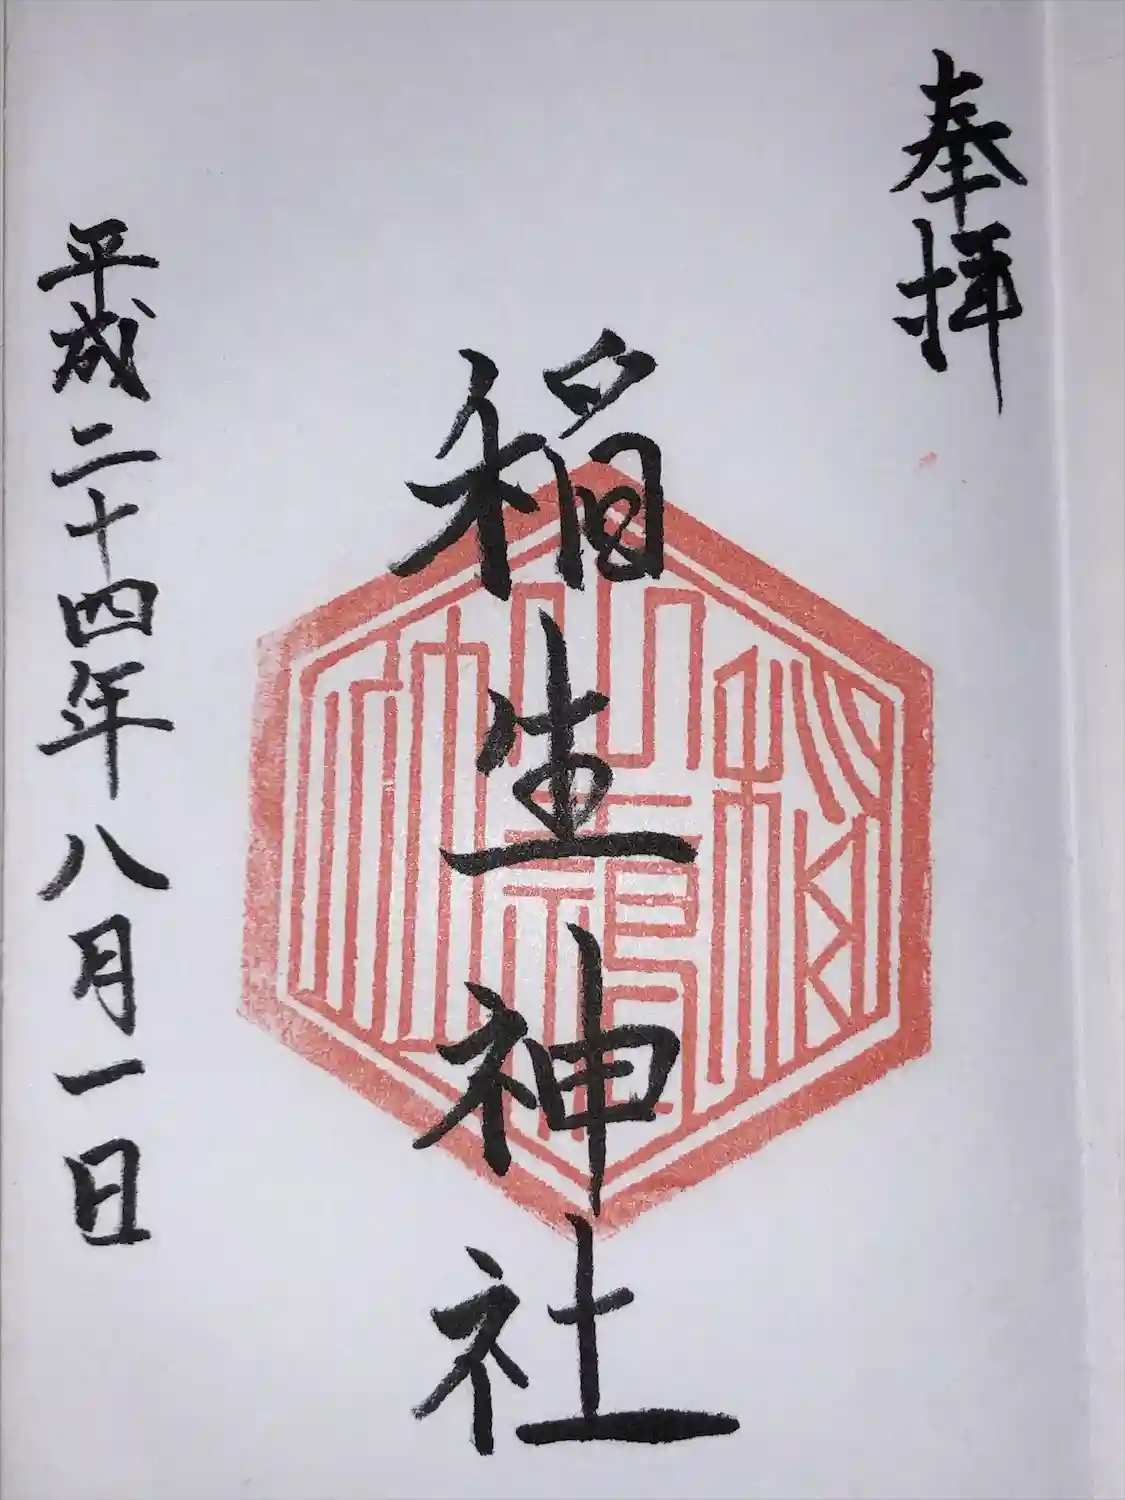 奉拝
稲生神社
平成二十四年八月一日